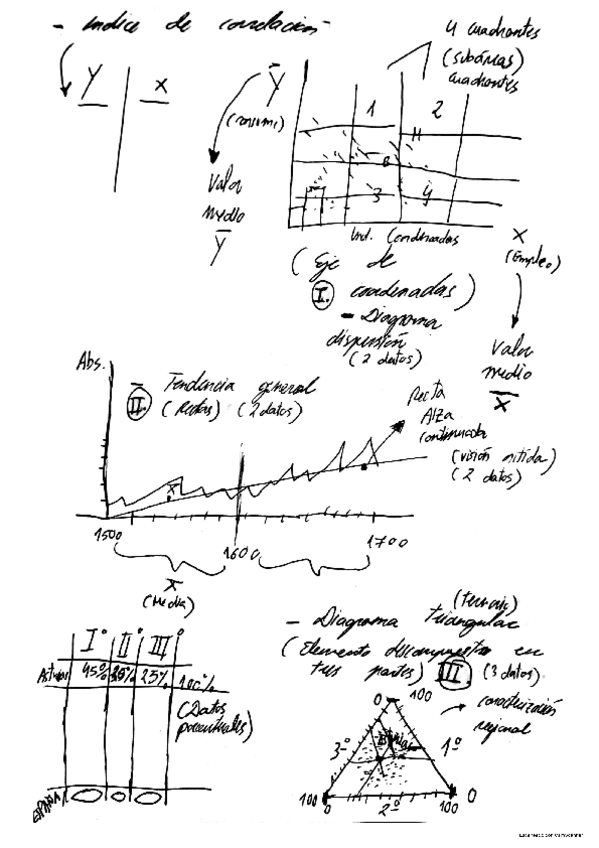 - indice de correlación
Y | X
Y (consumi)
Valor
medio
Y
4 cuadrantes
(subáreas)
cuadrantes
1 2
H
B
3 4
Ind. Coordenadas
X
(Empleo)
Valor
medio
X
(Eje de
I. coordenadas)
- Diagrama
dispersión
(2 datos)
Abs.
- Tendencia general
II. (Rectas) (2 datos)
Recta
Alza
continuada
(visión nítida)
(2 datos)
X
1500 1600 1700
X
(Media)
Iº IIº IIIº
Asturias 45% 25% 100%
(Datos
porcentuales)
ESPAÑA
- Diagrama triangular
(Elemento descompuesto en
tres partes) III (3 datos)
caracterización
regional
0 100
3º 1º
100 0 2º 100 0